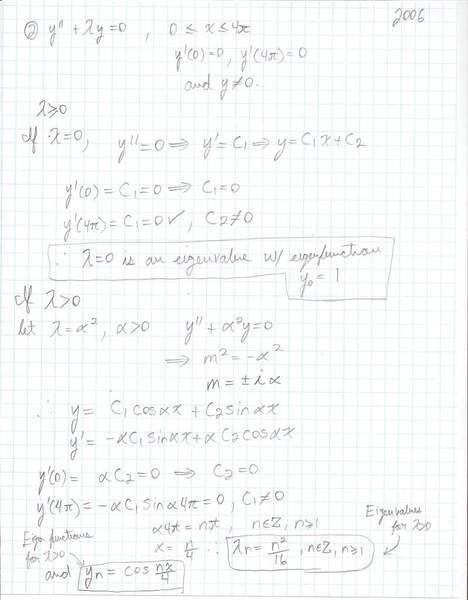 2006
② y'' + λy = 0 , 0 ≤ x ≤ 4π
y'(0) = 0, y'(4π) = 0
and y ≠ 0.
λ ≥ 0
If λ = 0, y'' = 0 ⟹ y' = C₁ ⟹ y = C₁x + C₂
y'(0) = C₁ = 0 ⟹ C₁ = 0
y'(4π) = C₁ = 0 ✓, C₂ ≠ 0
∴ λ = 0 is an eigenvalue w/ eigenfunction
y₀ = 1
If λ > 0
let λ = α², α > 0 y'' + α²y = 0
⟹ m² = -α²
m = ± i α
∴ y = C₁ cos αx + C₂ sin αx
y' = -αC₁ sin αx + αC₂ cos αx
y'(0) = αC₂ = 0 ⟹ C₂ = 0
y'(4π) = -αC₁ sin α4π = 0, C₁ ≠ 0
α4π = nπ, n∈ℤ, n≥1
α = n/4 ∴ λₙ = n²/16, n∈ℤ, n≥1
Eigenvalues
for λ>0
Eigen functions
for λ>0
and yₙ = cos nx/4